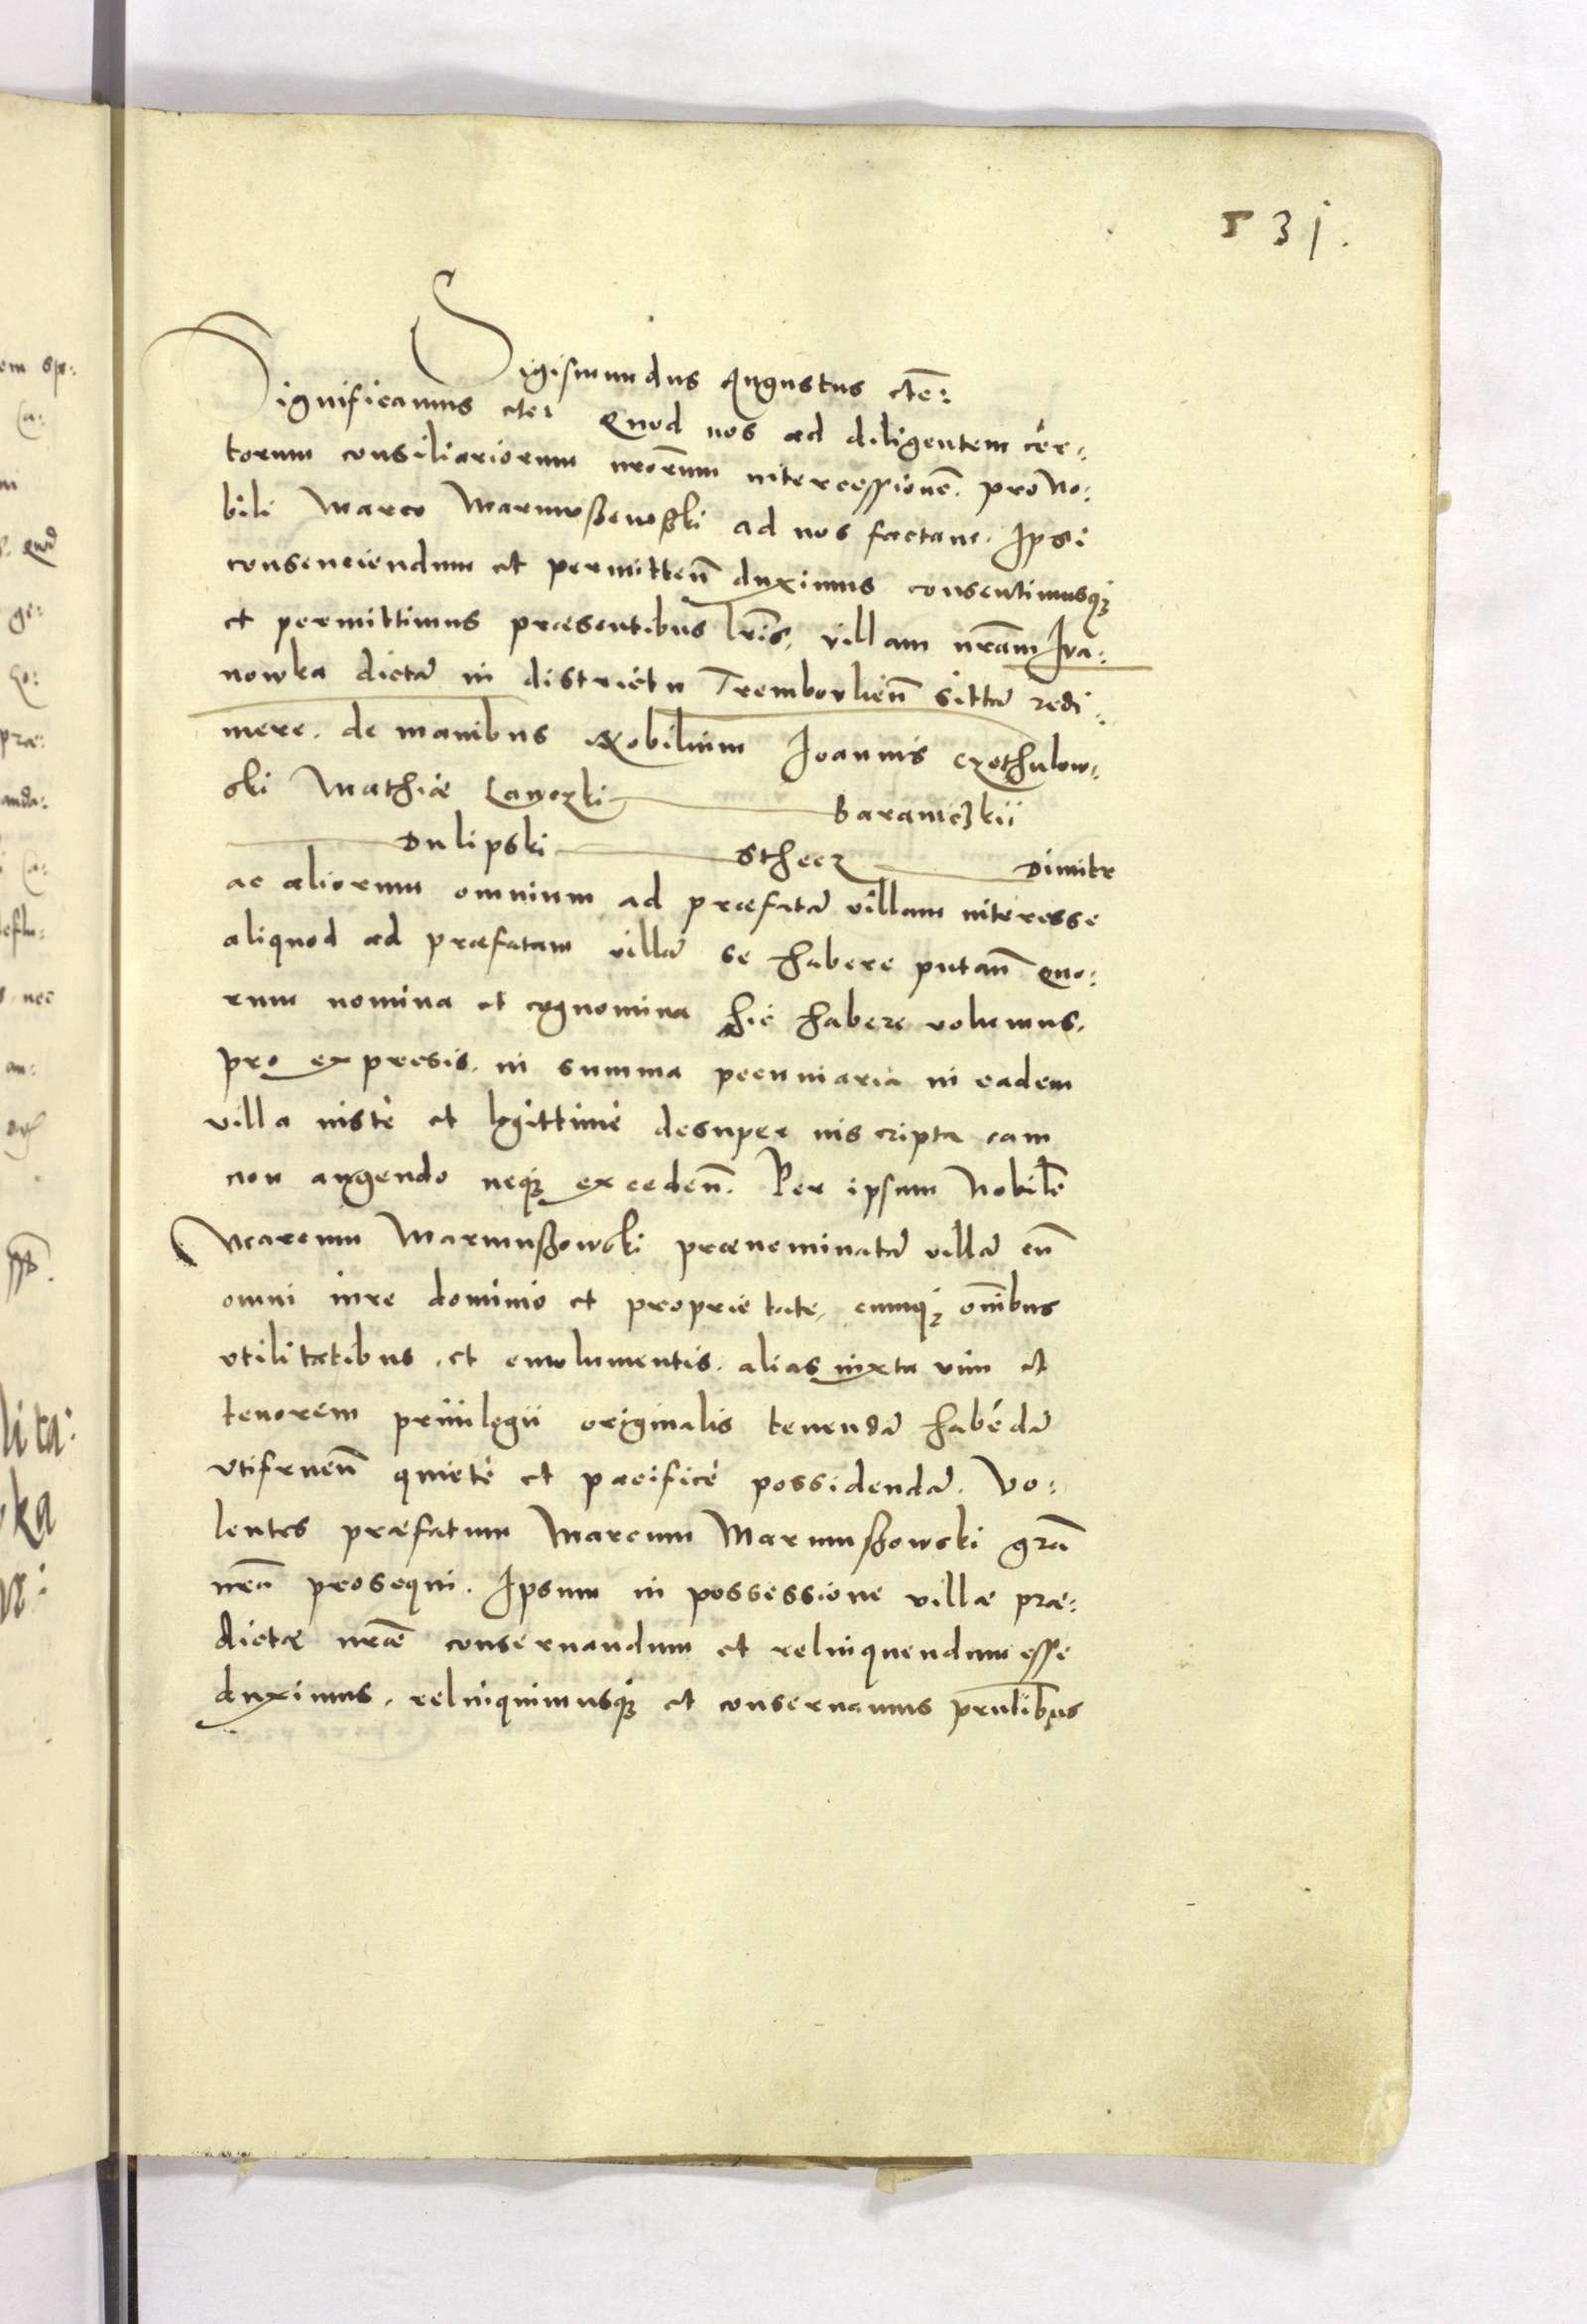 531.
Sigismundus Augustus etc̃:
Significamus etc: Quod nos ad diligentem cer:
torum consiliariorum nrõrum intercessionẽ. pro No:
bili Marco Marmoßewoßki ad nos factam. Ipsi
consenciendum et permitten̄ duximus consentimusq̃
et permittimus præsentibus lr̃is, villam nrãm Iva:
nowka dictã in districtu Tremboulien̄ sittã redi:
mere. de manibus Nobilium Joannis Czothulow:
ski Mathiæ Laworzki Baranieczkii
Dulipski Sthecz Dimitr
ac aliorum omnium ad præfatã villam interesse
aliquod ad præfatam villã se habere putan̄ quo:
rum nomina et cognomina hic habere volumus.
pro expresis. in summa pecuniaria in eadem
villa iustè et legittimè desuper inscripta eam
non augendo neq̃ exceden̄. Per ipsum Nobilẽ
Marcum Marmußowski prænominatã villã cũ
omni iure dominio et proprietate, cumq̃ om̃ibus
vtilitatibus. et emolumentis. alias iuxta vim et
tenorem priuilegii originalis tenendã habẽdã
vtifruen̄ quietè et pacificè possidendã. Vo:
lentes præfatum Marcum Marmußowski grã
nrã prosequi. Ipsum in possessione villæ præ:
dictæ nræ̃ conseruandum et relinquendum esse
duximus. relinquimusq̃ et conseruamus pr̃ntibus